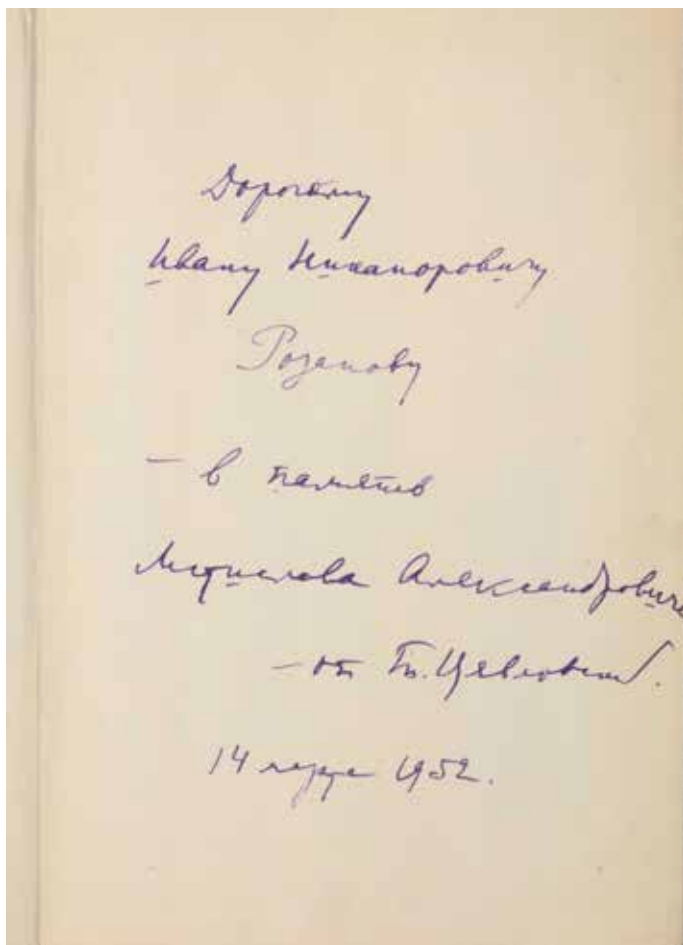 Дорогому
Ивану Никаноровичу
Розанову
— в память
Мстислава Александровича
— от Т. Цявловской.
14 марта 1952.